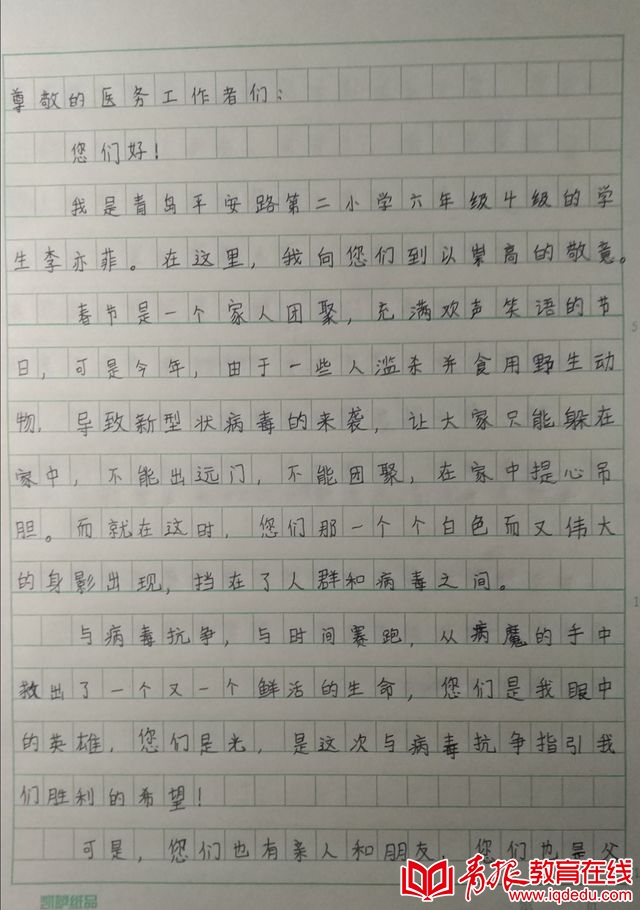 尊敬的医务工作者们：
您们好！
我是青岛平安路第二小学六年级4级的学
生李亦菲。在这里，我向您们到以崇高的敬意。
春节是一个家人团聚，充满欢声笑语的节
日，可是今年，由于一些人滥杀并食用野生动
物，导致新型状病毒的来袭，让大家只能躲在
家中，不能出远门，不能团聚，在家中提心吊
胆。而就在这时，您们那一个个白色而又伟大
的身影出现，挡在了人群和病毒之间。
与病毒抗争，与时间赛跑，从病魔的手中
救出了一个又一个鲜活的生命，您们是我眼中
的英雄，您们是光，是这次与病毒抗争指引我
们胜利的希望！
可是，您们也有亲人和朋友，您们也是父
5
1
凯萨纸品
青报教育在线
www.iqdedu.com